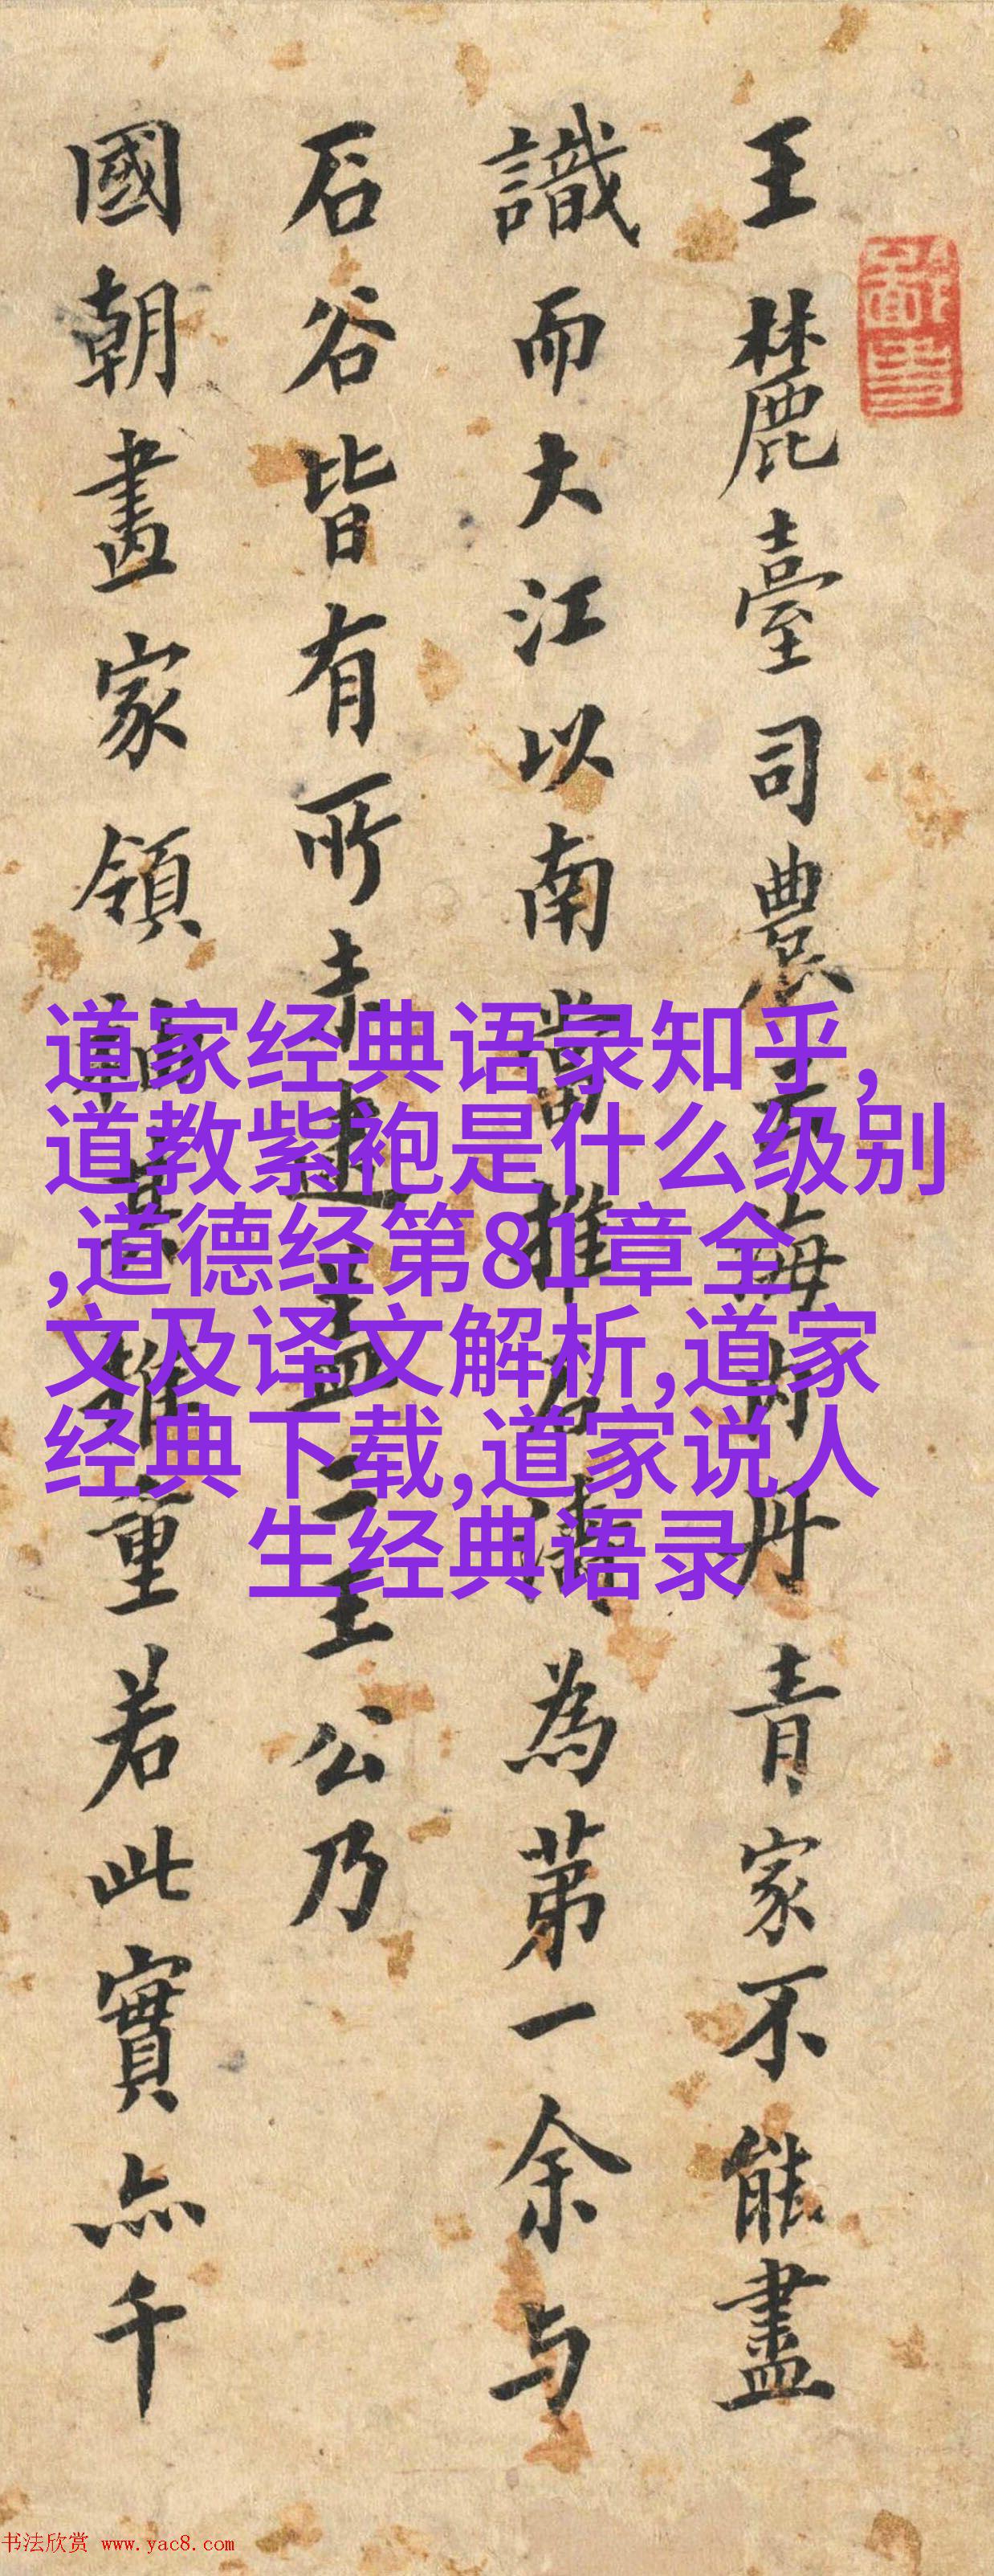 王麓臺司農云海內丹青家不能盡
識而大江以南當推石濤為第一余与
石谷皆有所未逮蓋二王公乃
國朝畫家領袖其推重若此實亦千
道家经典语录知乎,
道教紫袍是什么级别
,道德经第81章全
文及译文解析,道家
经典下载,道家说人
生经典语录
书法欣赏 www.yac8.com